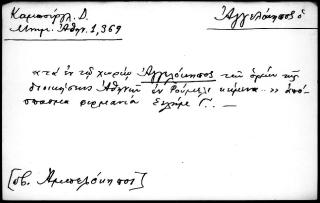 Καμπούρογλ. Δ.
Μνημ. Ἀθην. 1,369
Ἀγγελόκηπος ὁ
κατὰ ἐν τῷ χωρίῳ Ἀγγελόκηπος τῶν ὁρίων τῆς
διοικήσεως Ἀθηνῶν ἐν Ρούμελι κείμενα..» ἀπό-
σπασμα φιρμανίου Σελὴμ Γ΄. —
[πβ. Ἀμπελόκηποι]